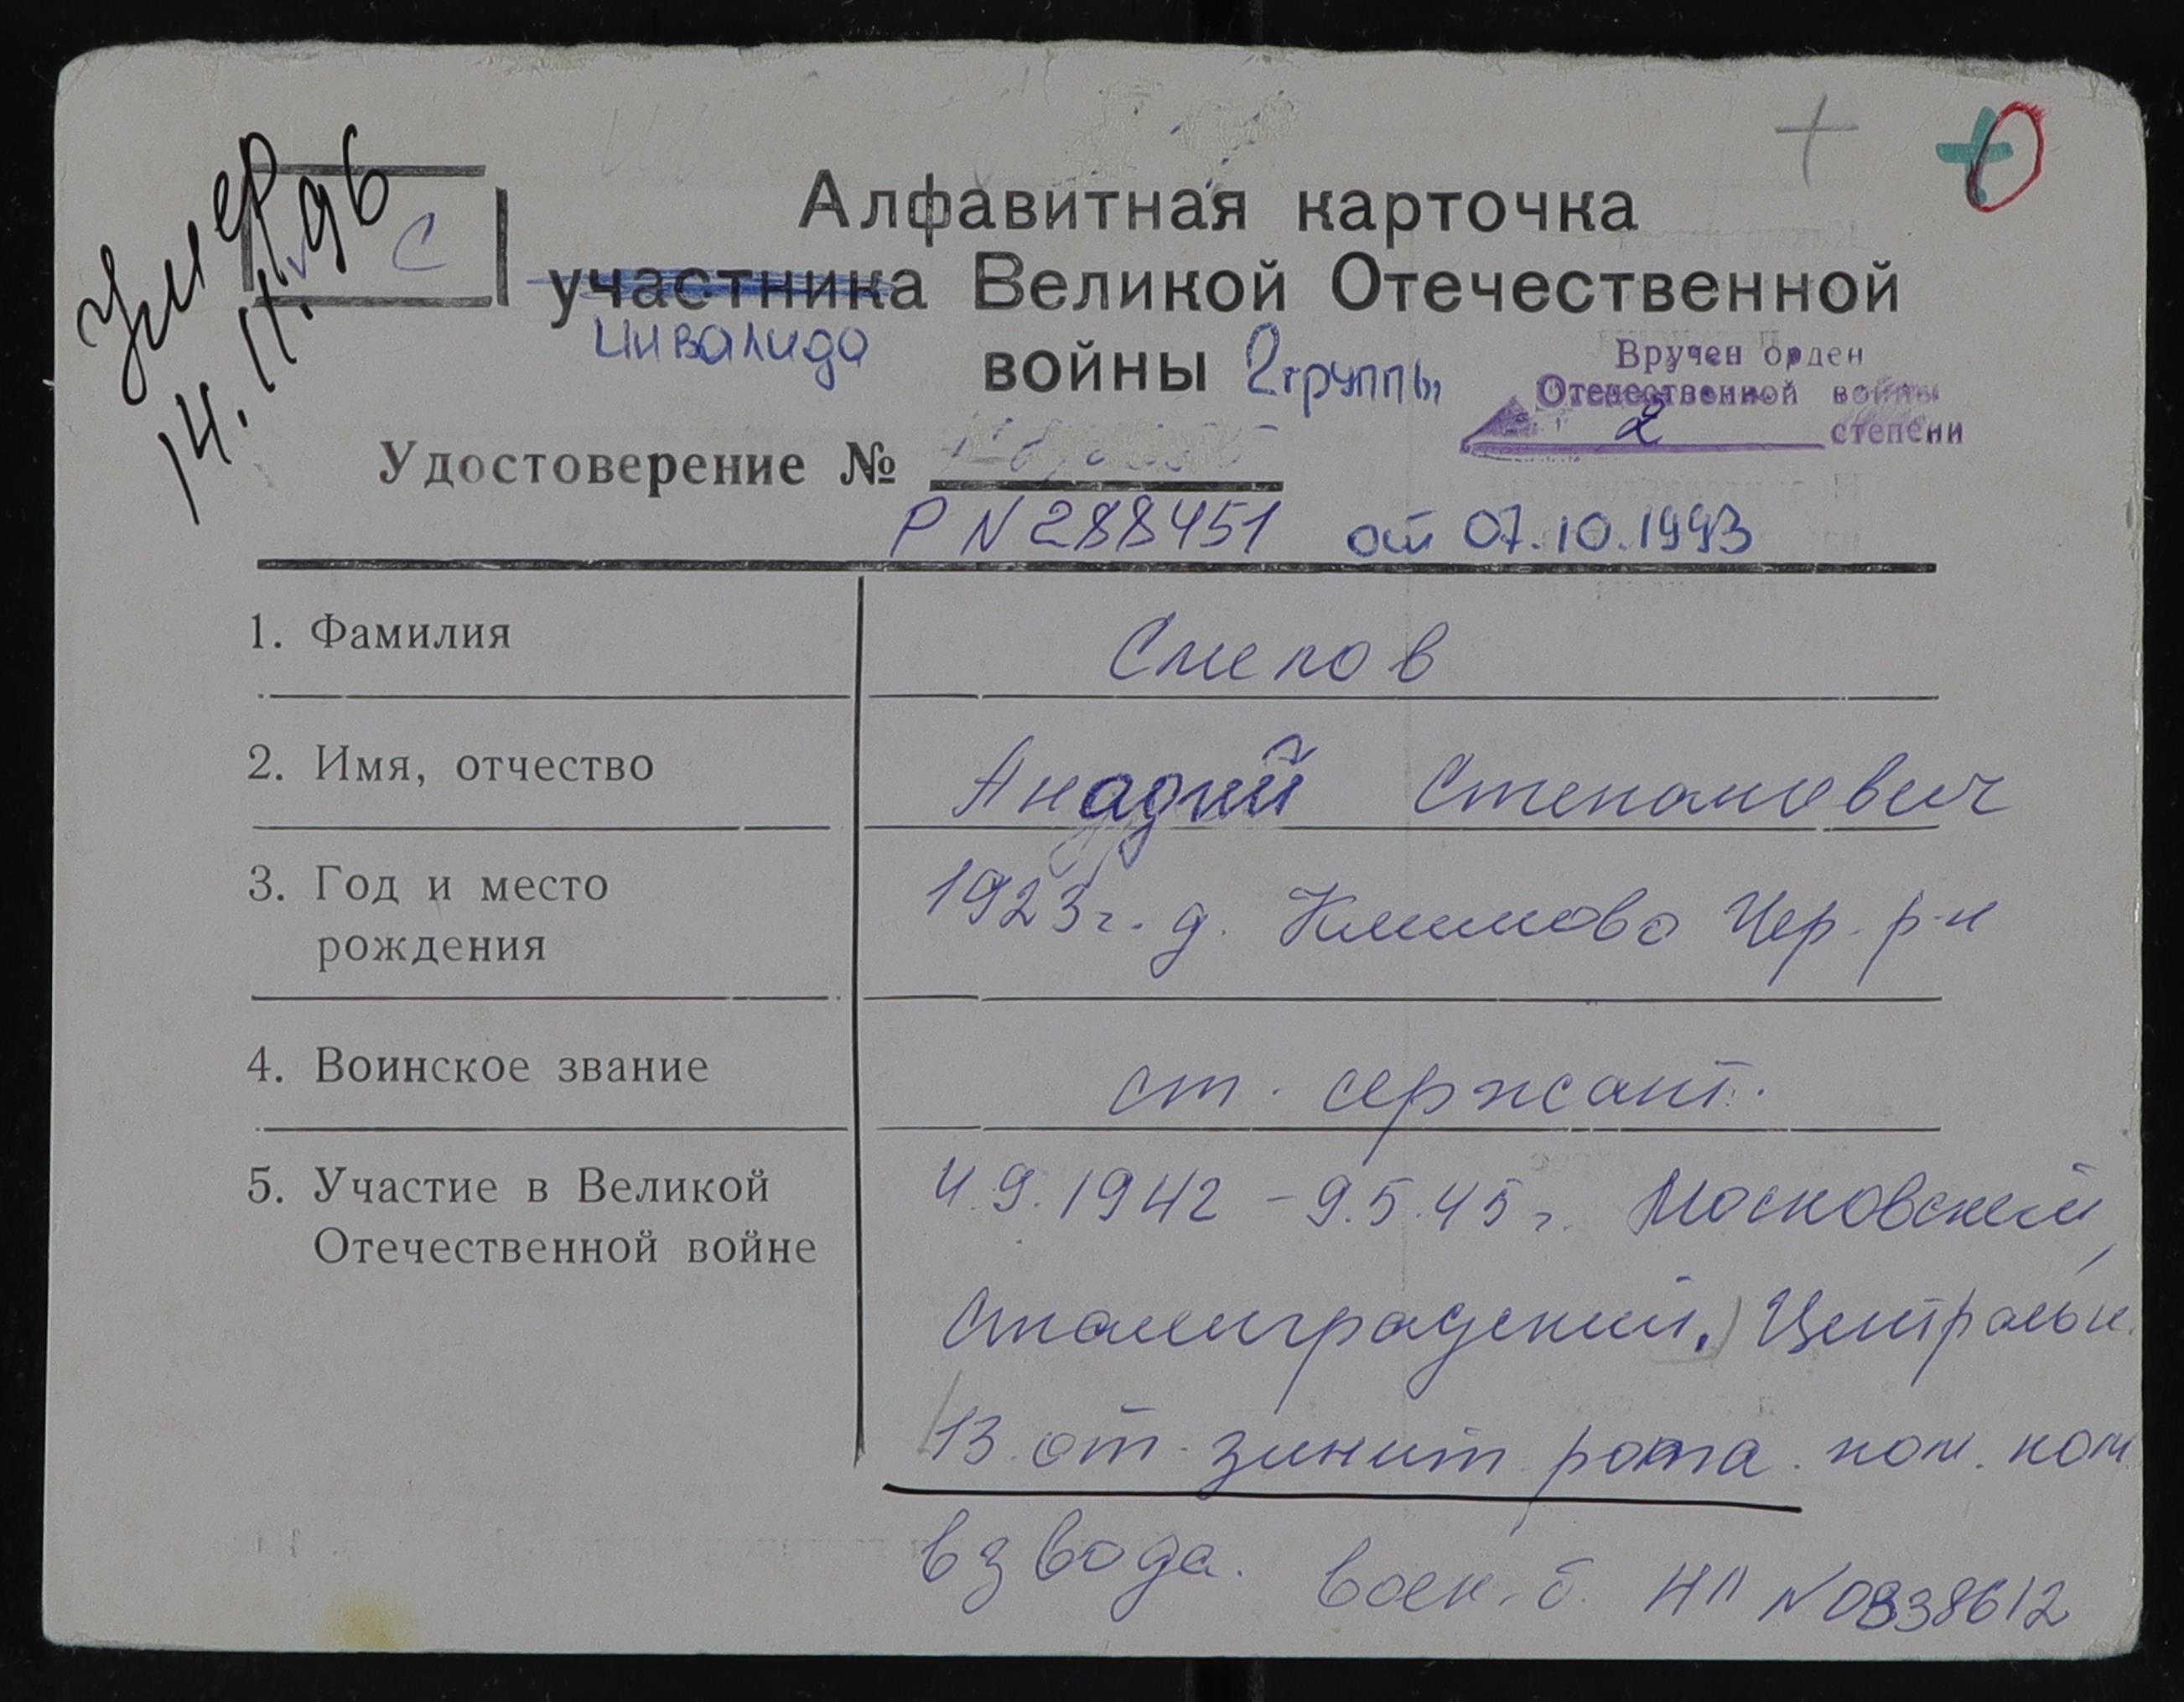 Умер
14.11.96
С
Алфавитная карточка
участника Великой Отечественной
инвалида войны 2 группы
Вручен орден
Отечественной войны
2 степени
Удостоверение №
Р N 288451 от 07.10.1993
1. Фамилия Смелов
2. Имя, отчество Анадий Степанович
3. Год и место 1923 г. д. Климово Чер. р-н
рождения
4. Воинское звание ст. сержант.
5. Участие в Великой 4.9.1942 - 9.5.45 г. Московский,
Отечественной войне
Сталинградский, Центральн.
13 от. зенит. рота. пом. ком.
взвода. Воен. б. НП N0838612